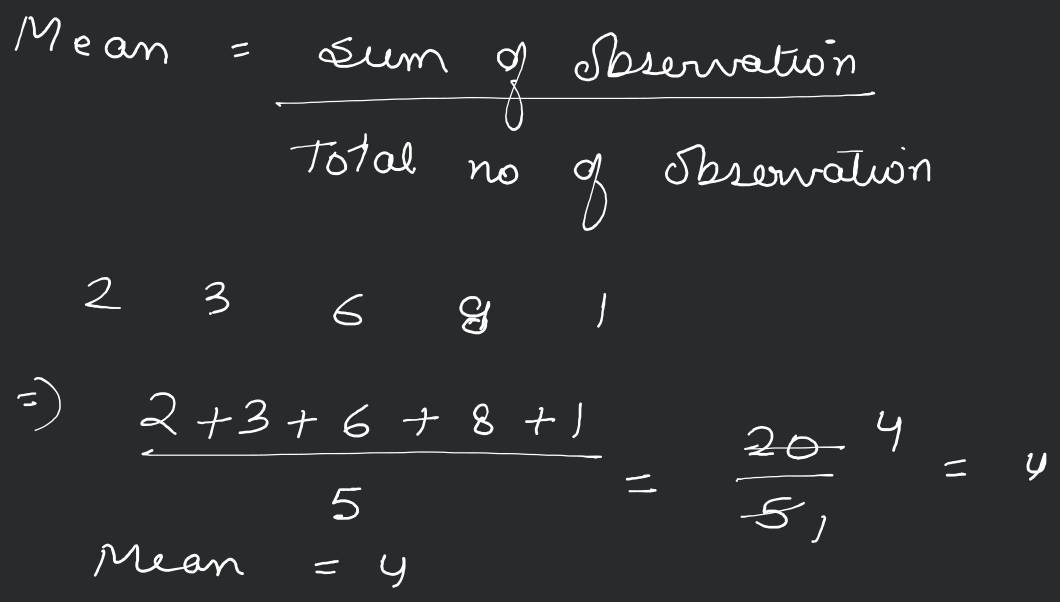 Mean = Sum of Observation
Total no of Observation
2 3 6 8 1
=) 2 + 3 + 6 + 8 + 1 = 20 4 = 4
5 5 1
Mean = 4